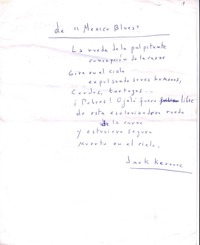 de "Mexico Blues"
La rueda de la palpitante
concepción de la carne
Gira en el cielo
expulsando seres humanos,
Cerdos, tortugas...
¡Pobres! Ojalá fuera libre
de esta esclavizadora rueda
de la carne
y estuviese seguro
muerto en el cielo.
Jack Kerouac